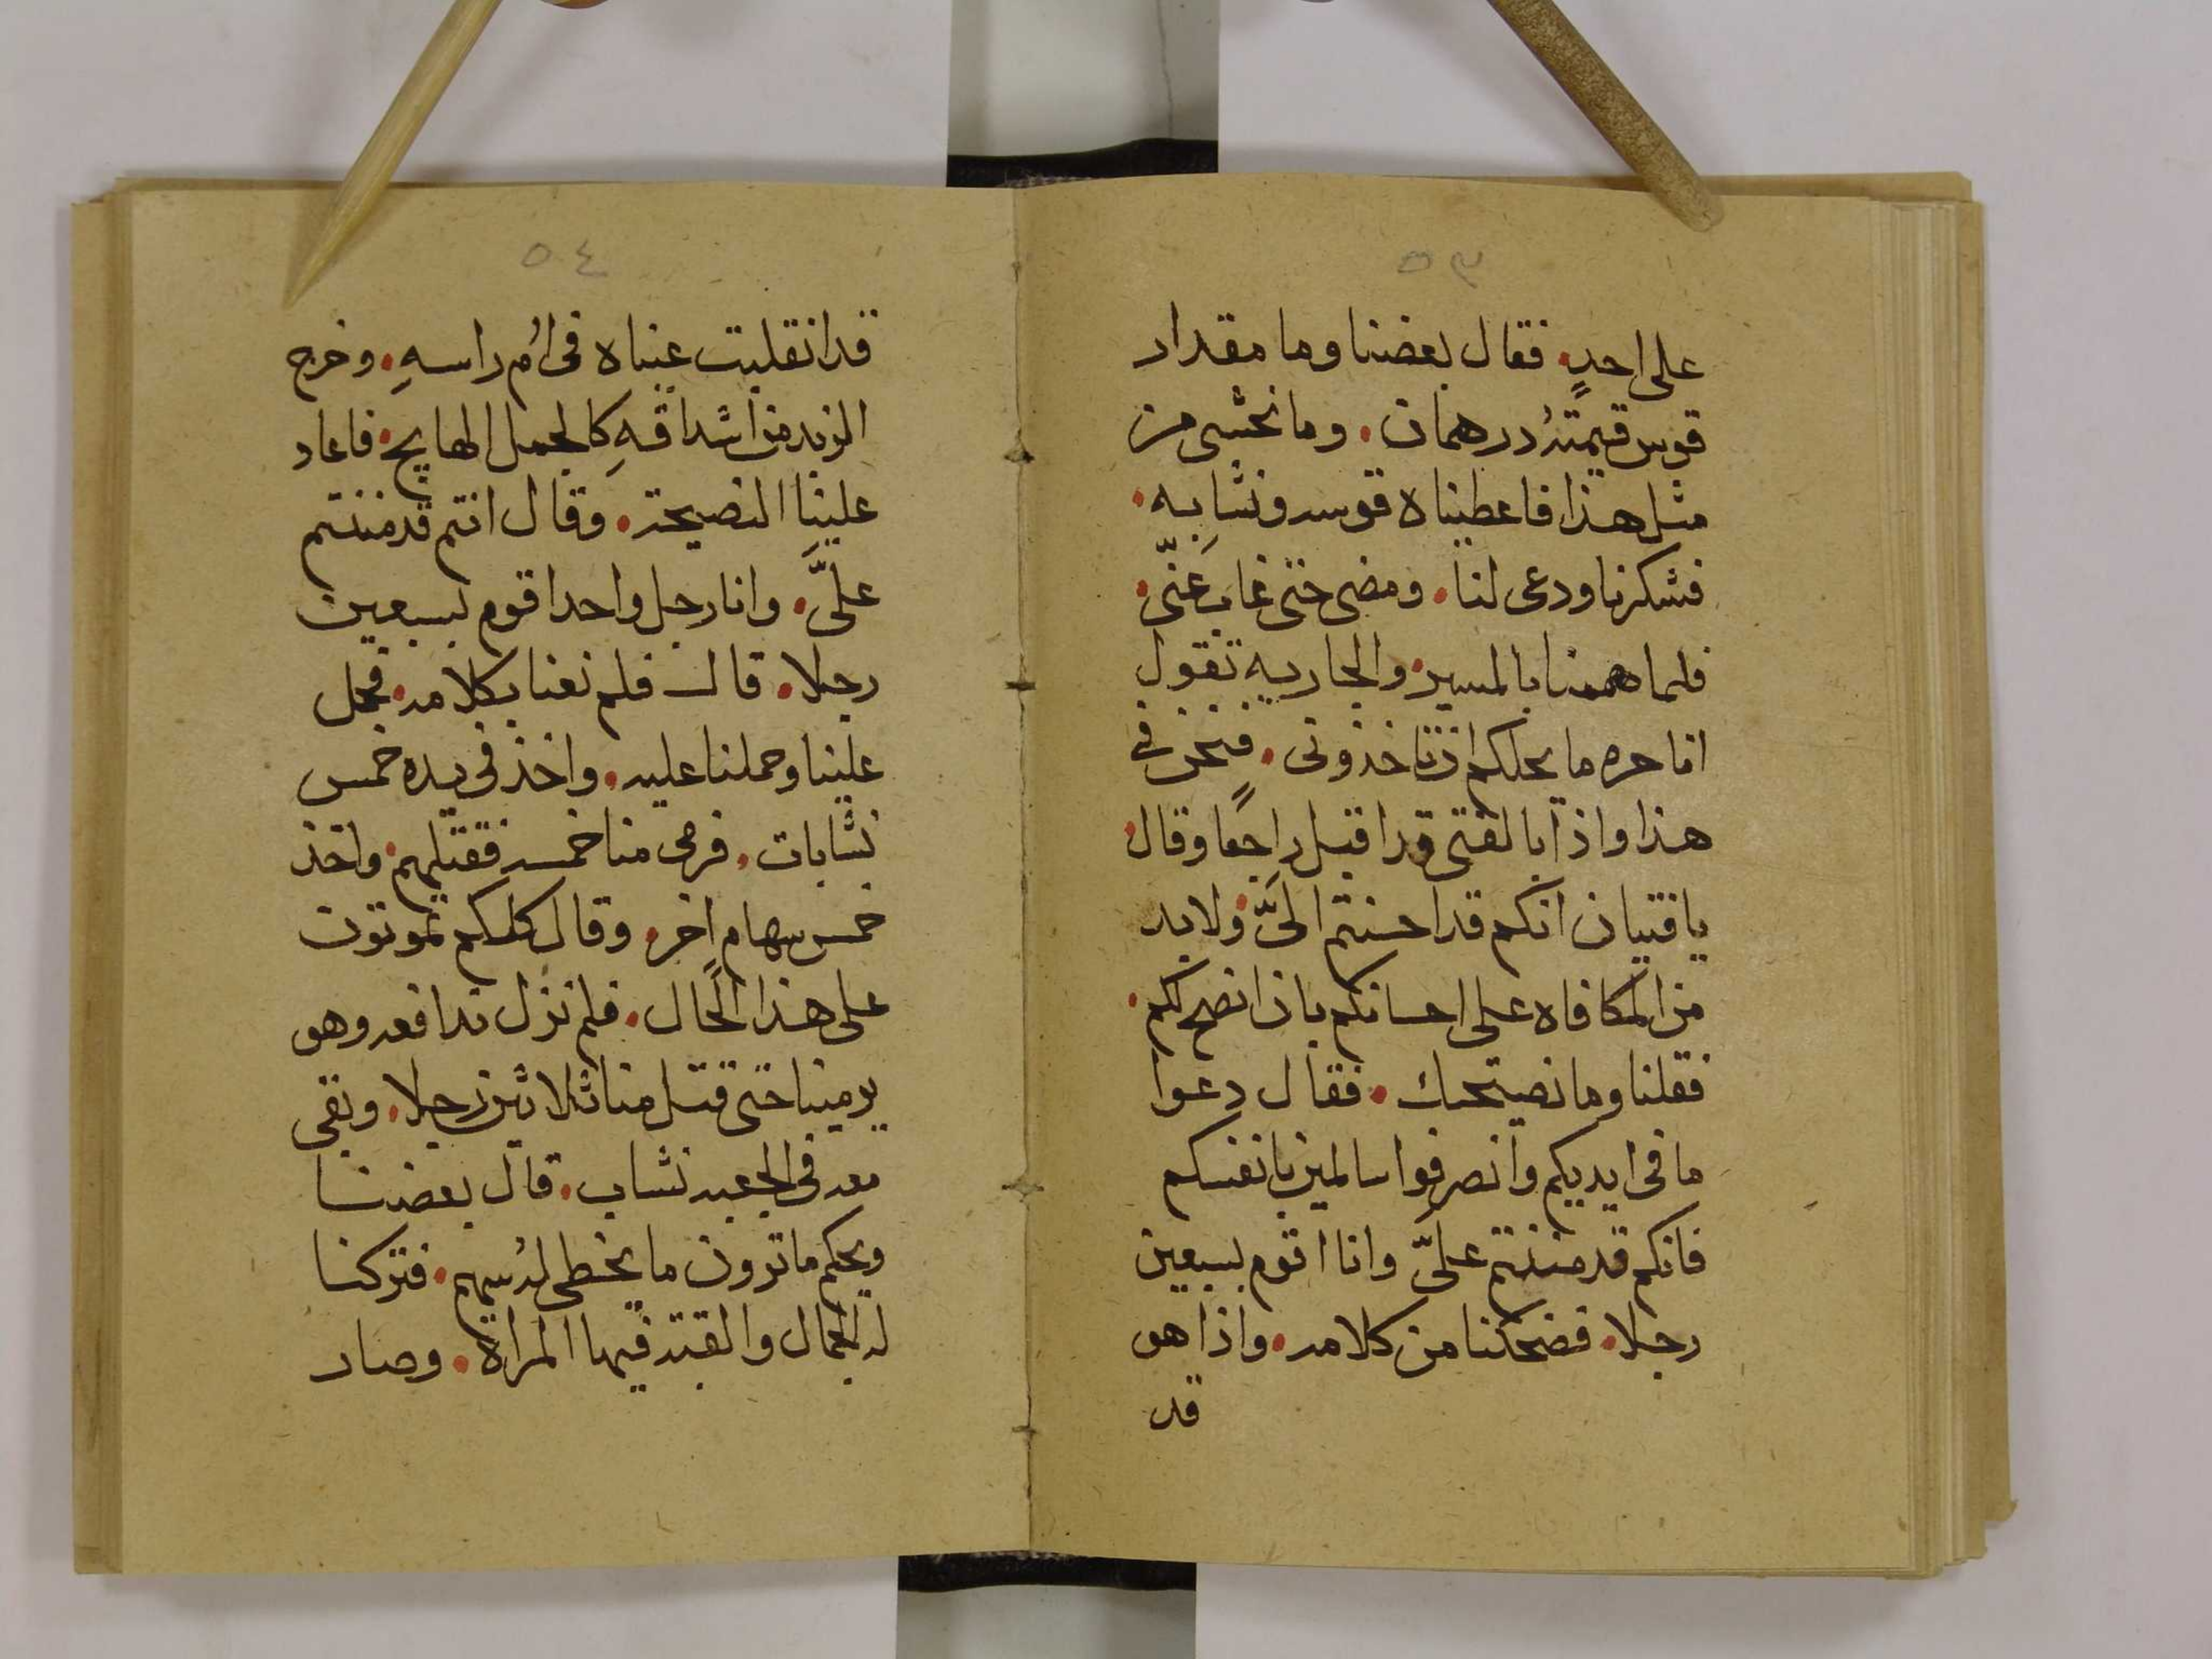 ٥٣
على احدٍ. فقال بعضنا وما مقدار
قوس قيمتهُ درهمان. وما نخشى من
مثل هذا فاعطيناه قوسه ونشابه.
فشكرنا ودعى لنا. ومضى حتى غاب عنّى.
فلما هممنا بالمسير. والجاريه تقول
انا حره ما يحلكم ان تاخذونى. فنحن فى
هذا واذا بالفتى قد اقبل راجعًا وقال.
يا فتيان انكم قد احسنتم الىَّ. ولا بد
من المكافاه على احسانكم بان انصح لكم.
فقلنا وما نصيحتك. فقال دعوا
ما فى ايديكم وانصرفوا سالمين بانفسكم
فانكم قد مننتم علىّ وانا اقوم بسبعين
رجلا. فضحكنا من كلامه. واذا هو
قد
٥٤
قد انقلبت عيناه فى اُم راسهِ. وخرج
الزبد من اشداقهِ كالجمل الهايج. فاعاد
علينا النصيحة. وقال انتم قد مننتم
علىَّ. وانا رجل واحد اقوم بسبعين
رجلا. قال فلم نعبا بكلامه. فحمل
علينا وحملنا عليه. واخذ فى يده خمس
نشابات. فرمى منا خمسه فقتلهم. واخذ
خمس سهام اخر. وقال كلكم تموتون
على هذا الحال. فلم نزل ندافعه وهو
يرمينا حتى قتل منا ثلاثين رجلا. وبقى
معه فى الجعبه نشاب. قال بعضنا
ويحكم ما ترون ما يخطى لهُ سهم. فتركنا
له الجمال والقبة فيها المراة. وصار